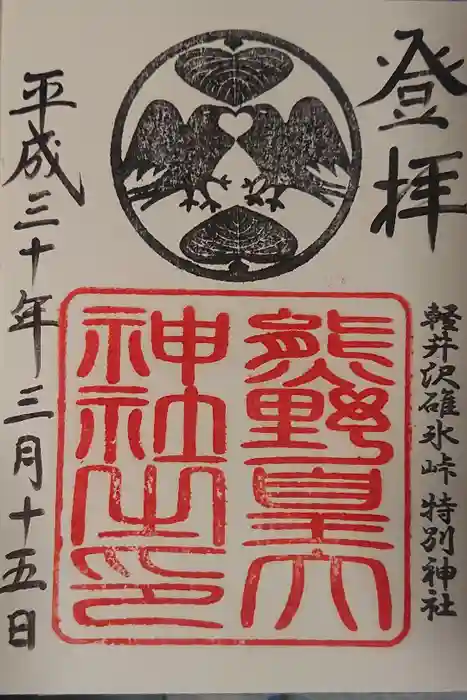 登拝
軽井沢碓氷峠 特別神社
熊野皇大
神社之印
平成三十年三月十五日